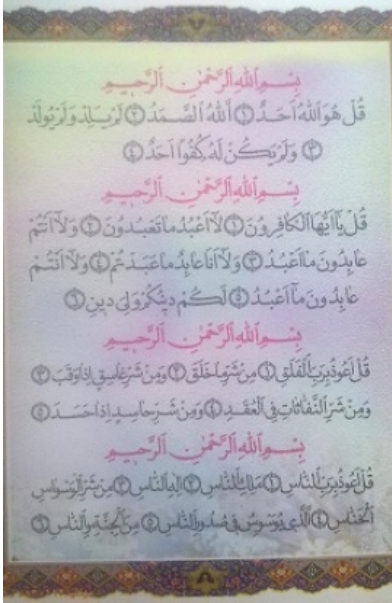 بِسْمِ اللهِ الرَّحْمٰنِ الرَّحِيمِ
قُلْ هُوَ اللهُ اَحَدٌ ﴿١﴾ اَللهُ الصَّمَدُ ﴿٢﴾ لَمْ يَلِدْ وَلَمْ يُولَدْ
﴿٣﴾ وَلَمْ يَكُنْ لَهُ كُفُوًا اَحَدٌ ﴿٤﴾
بِسْمِ اللهِ الرَّحْمٰنِ الرَّحِيمِ
قُلْ يَا اَيُّهَا الْكَافِرُونَ ﴿١﴾ لَا اَعْبُدُ مَا تَعْبُدُونَ ﴿٢﴾ وَلَا اَنْتُمْ
عَابِدُونَ مَا اَعْبُدُ ﴿٣﴾ وَلَا اَنَا عَابِدٌ مَا عَبَدْتُمْ ﴿٤﴾ وَلَا اَنْتُمْ
عَابِدُونَ مَا اَعْبُدُ ﴿٥﴾ لَكُمْ دِينُكُمْ وَلِيَ دِينِ ﴿٦﴾
بِسْمِ اللهِ الرَّحْمٰنِ الرَّحِيمِ
قُلْ اَعُوذُ بِرَبِّ الْفَلَقِ ﴿١﴾ مِنْ شَرِّ مَا خَلَقَ ﴿٢﴾ وَمِنْ شَرِّ غَاسِقٍ اِذَا وَقَبَ ﴿٣﴾
وَمِنْ شَرِّ النَّفَّاثَاتِ فِي الْعُقَدِ ﴿٤﴾ وَمِنْ شَرِّ حَاسِدٍ اِذَا حَسَدَ ﴿٥﴾
بِسْمِ اللهِ الرَّحْمٰنِ الرَّحِيمِ
قُلْ اَعُوذُ بِرَبِّ النَّاسِ ﴿١﴾ مَلِكِ النَّاسِ ﴿٢﴾ اِلٰهِ النَّاسِ ﴿٣﴾ مِنْ شَرِّ الْوَسْوَاسِ
الْخَنَّاسِ ﴿٤﴾ اَلَّذِي يُوَسْوِسُ فِي صُدُورِ النَّاسِ ﴿٥﴾ مِنَ الْجِنَّةِ وَالنَّاسِ ﴿٦﴾